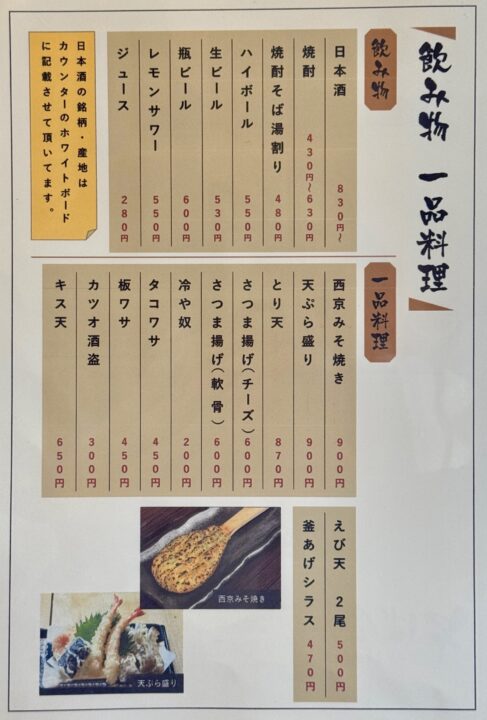 飲み物 一品料理
飲み物
日本酒 830円～
焼酎 430円～630円
焼酎そば湯割り 480円
ハイボール 550円
生ビール 530円
瓶ビール 600円
レモンサワー 550円
ジュース 280円
日本酒の銘柄・産地は
カウンターのホワイトボード
に記載させて頂いてます。
一品料理
西京みそ焼き 900円
天ぷら盛り 900円
とり天 870円
さつま揚げ(チーズ) 600円
さつま揚げ(軟骨) 600円
冷や奴 200円
タコワサ 450円
板ワサ 450円
カツオ酒盗 300円
キス天 650円
えび天 2尾 500円
釜あげシラス 470円
西京みそ焼き
天ぷら盛り